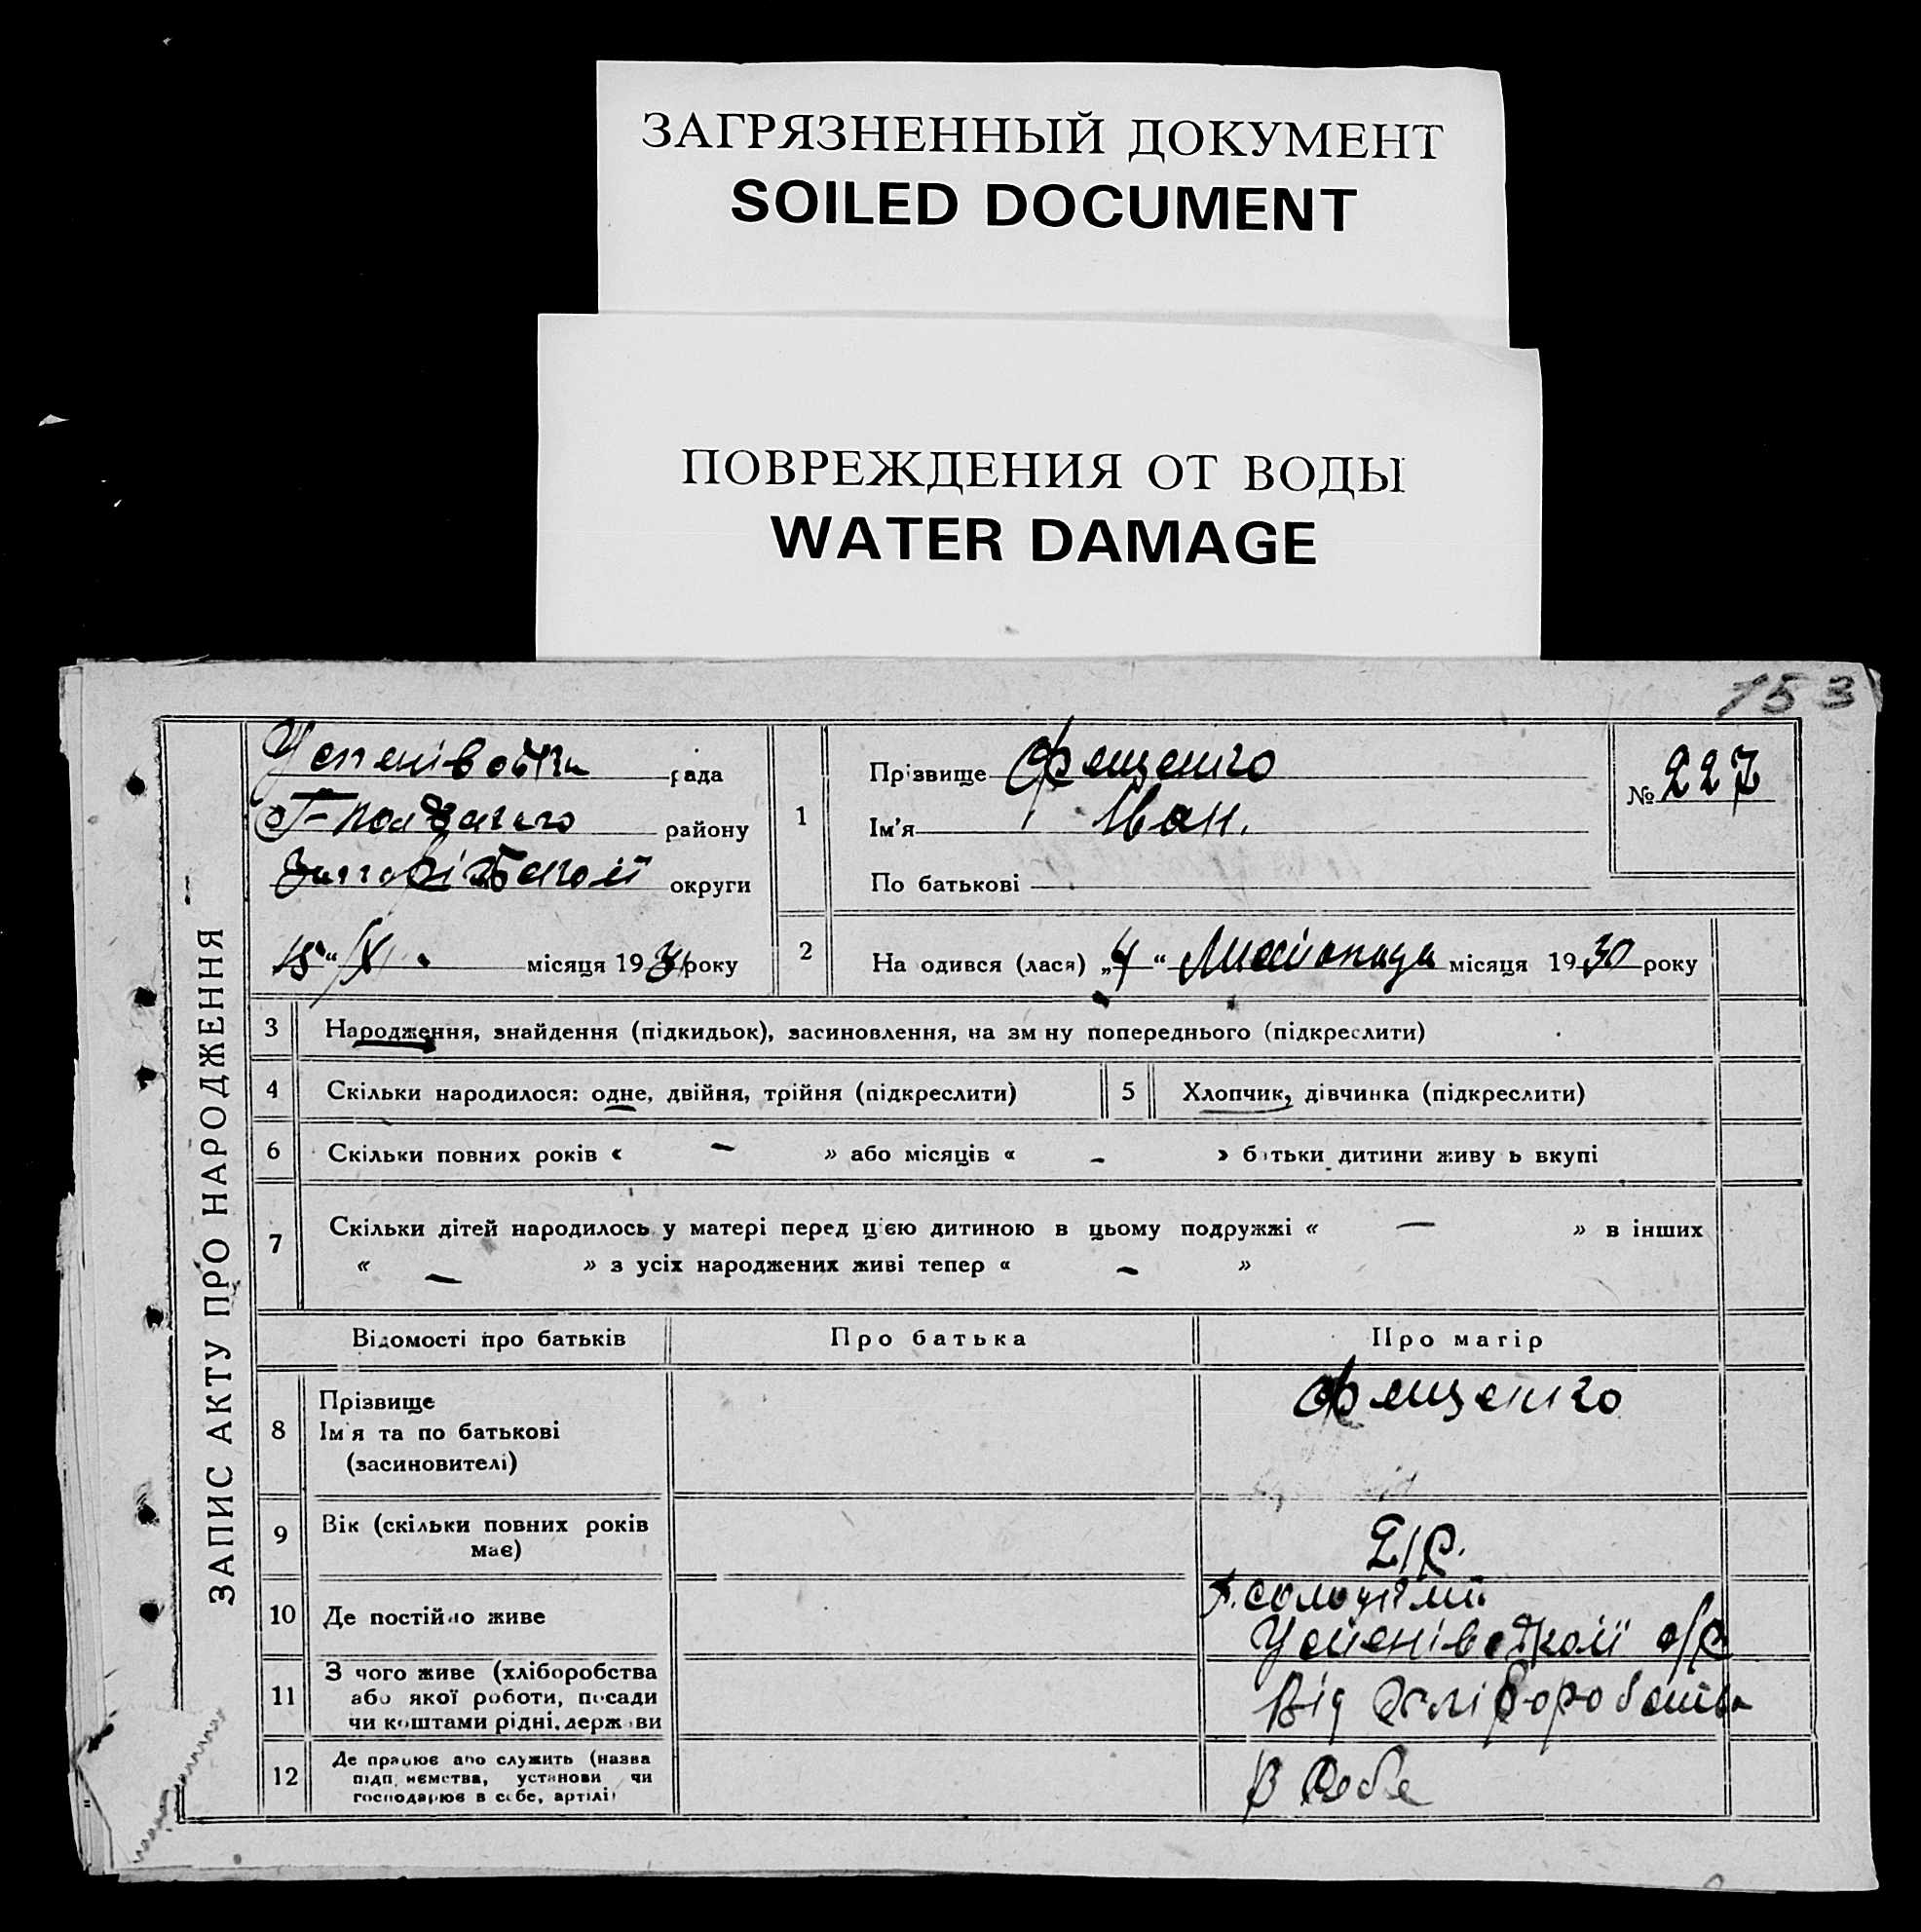 ЗАГРЯЗНЕННЫЙ ДОКУМЕНТ
SOILED DOCUMENT
ПОВРЕЖДЕНИЯ ОТ ВОДЫ
WATER DAMAGE
153
ЗАПИС АКТУ ПРО НАРОДЖЕННЯ
Успенівська рада
району
округи
15 " XI місяця 193 року
1
Прізвище Фещенко
Ім'я Іван.
По батькові
№ 227
2
На одився (лася) „4 “ Листопада місяця 1930 року
3 Народження, знайдення (підкидьок), засиновлення, на зм ну попереднього (підкреслити)
4 Скільки народилося: одне, двійня, трійня (підкреслити)
5 Хлопчик, дівчинка (підкреслити)
6 Скільки повних років « — » або місяців « — » б тьки дитини живу ь вкупі
7 Скільки дітей народилось у матері перед цією дитиною в цьому подружжі « — » в інших
« — » з усіх народжених живі тепер « — »
Відомості про батьків Про батька Про матір
8 Прізвище
Ім'я та по батькові
(засиновителі)
Фещенко
9 Вік (скільки повних років
має)
21 р.
10 Де постійно живе
Успенівської с/р
11 З чого живе (хліборобства
або якої роботи, посади
чи коштами рідні, держ ви
Від хліборобства
12 Де працює або служить (назва
підп ємства, установи чи
господарює в себе, артілі)
В себе